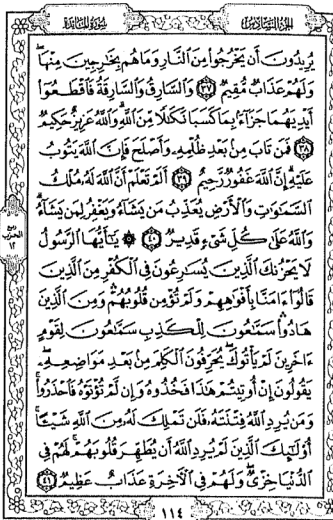 الجزء السادس
سورة المائدة
يُرِيدُونَ أَن يَخْرُجُوا۟ مِنَ ٱلنَّارِ وَمَا هُم بِخَـٰرِجِينَ مِنْهَا ۖ
وَلَهُمْ عَذَابٌ مُّقِيمٌ ٣٧ وَٱلسَّارِقُ وَٱلسَّارِقَةُ فَٱقْطَعُوٓا۟
أَيْدِيَهُمَا جَزَآءًۢ بِمَا كَسَبَا نَكَـٰلًا مِّنَ ٱللَّهِ ۗ وَٱللَّهُ عَزِيزٌ حَكِيمٌ
٣٨ فَمَن تَابَ مِنۢ بَعْدِ ظُلْمِهِۦ وَأَصْلَحَ فَإِنَّ ٱللَّهَ يَتُوبُ
عَلَيْهِ ۗ إِنَّ ٱللَّهَ غَفُورٌ رَّحِيمٌ ٣٩ أَلَمْ تَعْلَمْ أَنَّ ٱللَّهَ لَهُۥ مُلْكُ
ٱلسَّمَـٰوَٰتِ وَٱلْأَرْضِ يُعَذِّبُ مَن يَشَآءُ وَيَغْفِرُ لِمَن يَشَآءُ ۗ
وَٱللَّهُ عَلَىٰ كُلِّ شَىْءٍ قَدِيرٌ ٤٠ ۞ يَـٰٓأَيُّهَا ٱلرَّسُولُ
لَا يَحْزُنكَ ٱلَّذِينَ يُسَـٰرِعُونَ فِى ٱلْكُفْرِ مِنَ ٱلَّذِينَ
قَالُوٓا۟ ءَامَنَّا بِأَفْوَٰهِهِمْ وَلَمْ تُؤْمِن قُلُوبُهُمْ ۛ وَمِنَ ٱلَّذِينَ
هَادُوا۟ ۛ سَمَّـٰعُونَ لِلْكَذِبِ سَمَّـٰعُونَ لِقَوْمٍ
ءَاخَرِينَ لَمْ يَأْتُوكَ ۖ يُحَرِّفُونَ ٱلْكَلِمَ مِنۢ بَعْدِ مَوَاضِعِهِۦ ۖ
يَقُولُونَ إِنْ أُوتِيتُمْ هَـٰذَا فَخُذُوهُ وَإِن لَّمْ تُؤْتَوْهُ فَٱحْذَرُوا۟ ۚ
وَمَن يُرِدِ ٱللَّهُ فِتْنَتَهُۥ فَلَن تَمْلِكَ لَهُۥ مِنَ ٱللَّهِ شَيْـًٔا ۚ
أُو۟لَـٰٓئِكَ ٱلَّذِينَ لَمْ يُرِدِ ٱللَّهُ أَن يُطَهِّرَ قُلُوبَهُمْ ۚ لَهُمْ فِى
ٱلدُّنْيَا خِزْىٌ ۖ وَلَهُمْ فِى ٱلْـَٔاخِرَةِ عَذَابٌ عَظِيمٌ ٤١
ربع
الحزب
١٢
١١٤